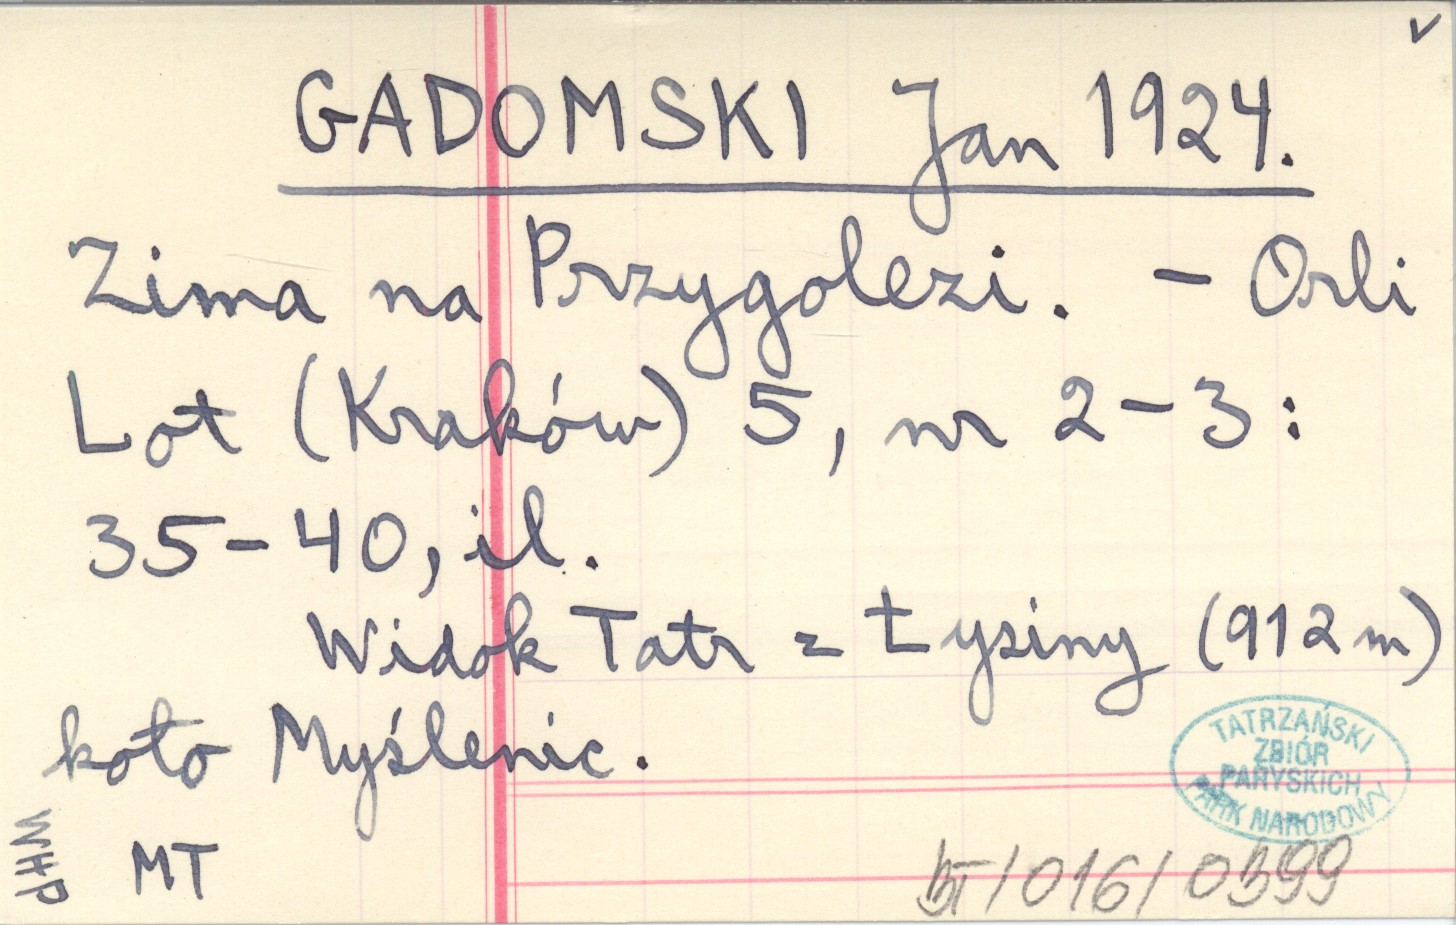 GADOMSKI Jan 1924.
Zima na Przygolezi. - Orli
Lot (Kraków) 5, nr 2-3:
35-40, il.
Widok Tatr z Łysiny (912 m)
koło Myślenic.
MT
WHP
TATRZAŃSKI
ZBIÓR
PARYSKICH
PARK NARODOWY
BT/016/0399